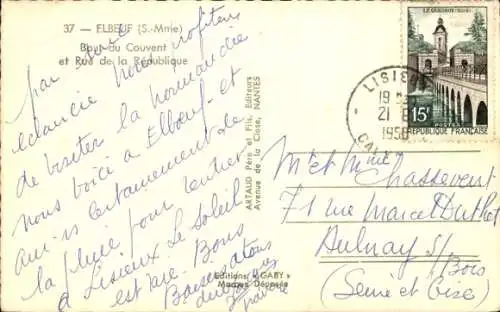 37 — ELBEUF (S.-Mme)
Bout du Couvent
et Rue de la République
par suite
éclaircie nous profitons
de visiter la normandie
nous voici a Elboeuf et
de
la pluie pour
a Lisieux Le Soleil
est Bons
Baisers a tous
ARTAUD Père et Fils, Editeurs
Avenue de la Close, NANTES
Editions « GABY »
Marque Déposée
LE QUESNOY (NORD)
15F
REPUBLIQUE FRANÇAISE
LISIEUX
19
21
1958
CALV
Mr et Mme Chassevent
71 rue Marcel
Aulnay s/
Bois
(Seine et Oise)